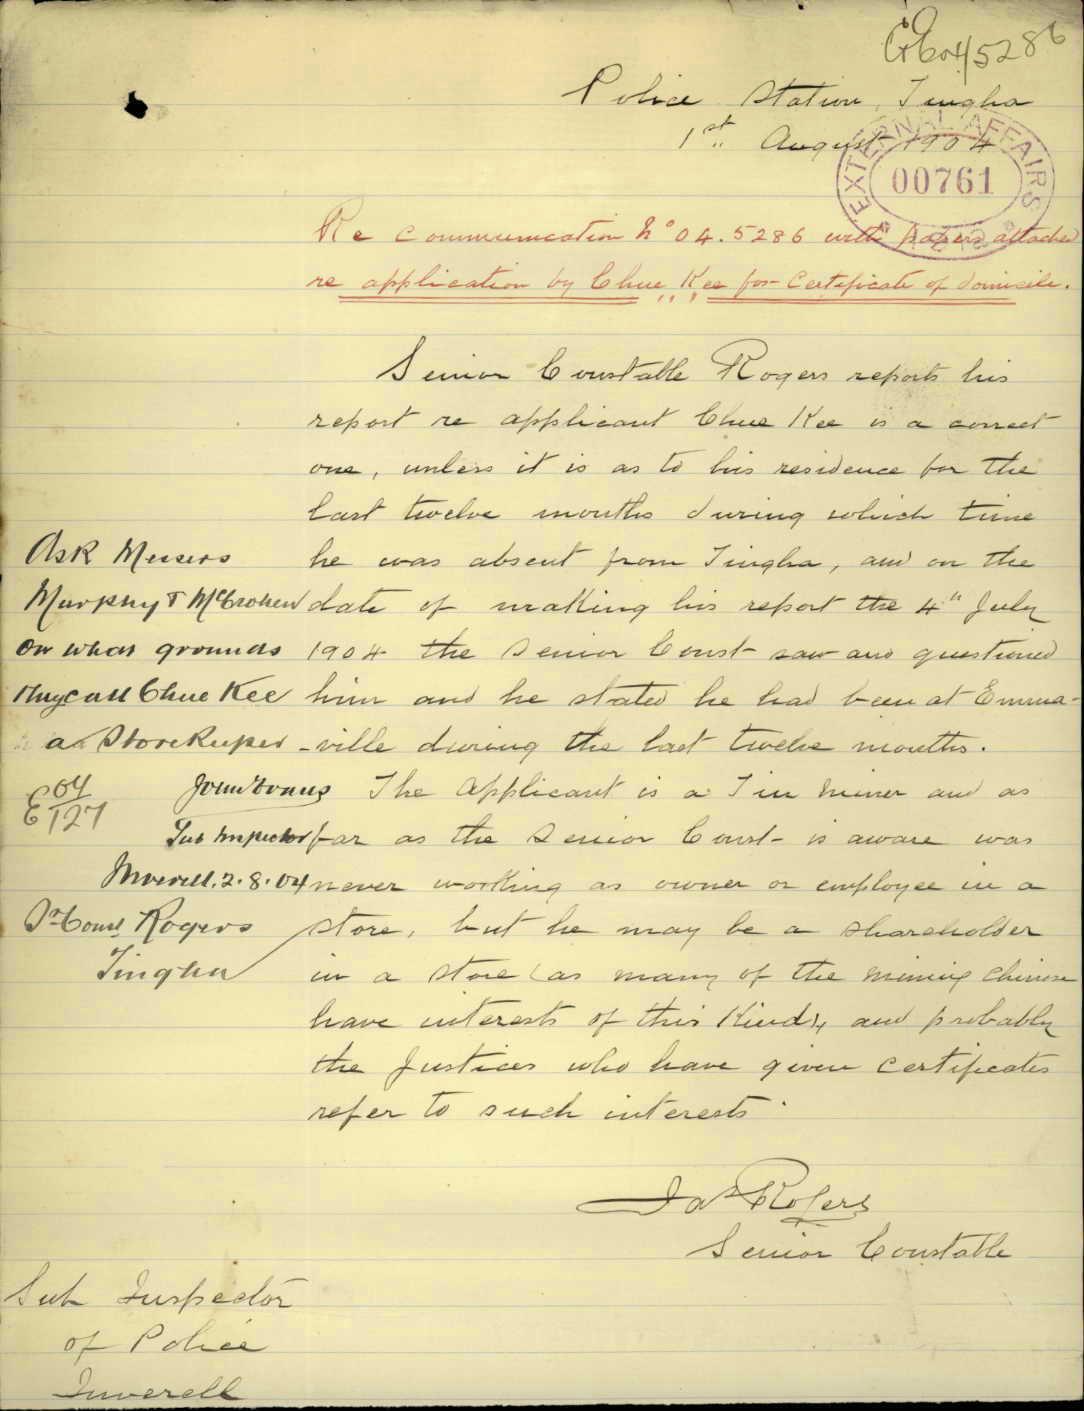 04/5286
Police Station, Tingha
1st August 1904
EXTERNAL AFFAIRS
00761
Re Communication No 04.5286 with papers attached
re application by Chue Kee for Certificate of domicile.
Senior Constable Rogers reports his
report re applicant Chue Kee is a correct
one, unless it is as to his residence for the
last twelve months during which time
he was absent from Tingha, and on the
date of making his report the 4th July
1904 the Senior Const saw and questioned
him and he stated he had been at Emma-
-ville during the last twelve months.
The applicant is a Tin miner and as
far as the Senior Const- is aware was
never working as owner or employee in a
store, but he may be a shareholder
in a store (as many of the mining Chinese
have interests of this Kind), and probably
the Justices who have given certificates
refer to such interests.
Jas Rogers
Senior Constable
Sub Inspector
of Police
Inverell
Ask Messrs
Murphy & McCrohen
on what grounds
they call Chue Kee
a Storekeeper
John Evans
Sub Inspector
Inverell. 2.8.04
Sr Const Rogers
Tingha
E 04
127